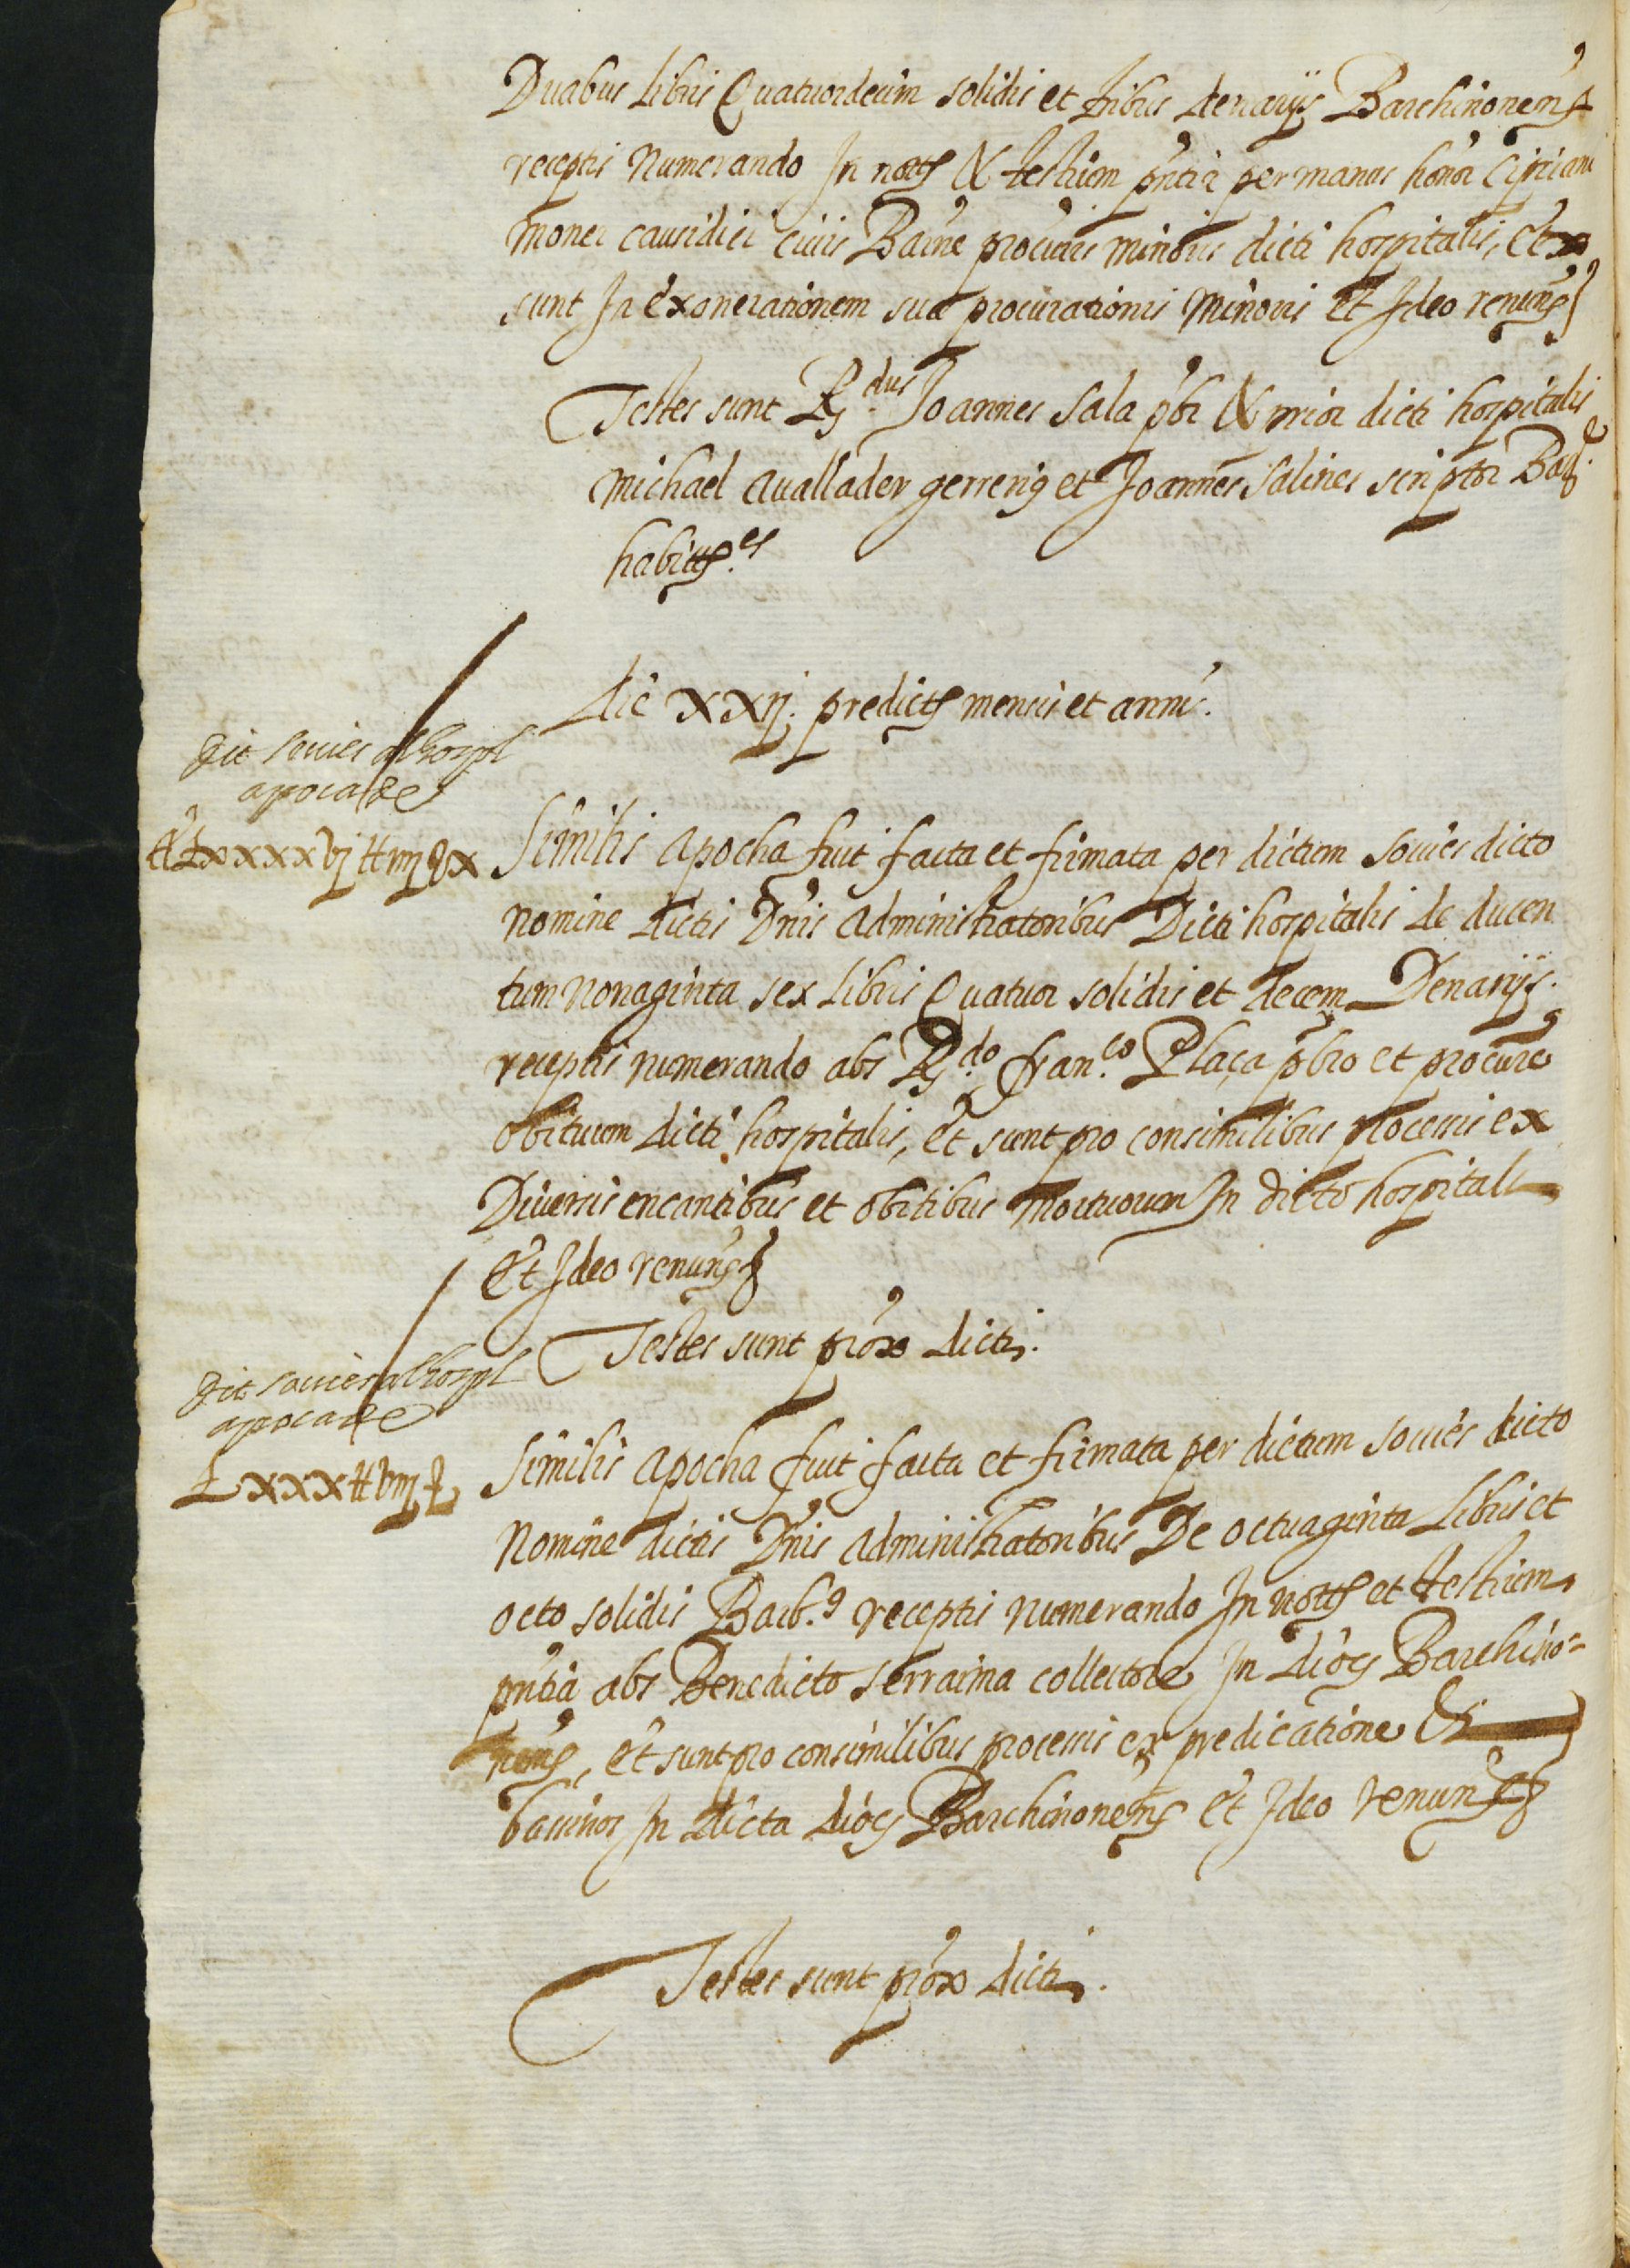 Duabus libris Quatuordecim solidis et tribus denarijs Barchinonens
receptis Numerando In nots & testium pntia per manus honor Cipriani
monet causidici civis Barne procuris minoris dicti hospitalis, et
sunt In exonerationem sua procurationis Minoris et Ideo renuns
Testes sunt Rdus Joannes Sala pbr & prior dicti hospitalis
Michael avallader gerrerig et Joannes Salines scriptor Bar
habittes
Die xxij. predicts mensis et anni.
dit sovies al hospl
apoca de
Similis apocha fuit facta et firmata per dictum sovies dicto
nomine dictis Dnis administratoribus Dicti hospitalis de ducen
tum nonaginta sex libris Quatuor solidis et decem Denarijs.
receptis numerando abs Rdo. fran.co Plaça pbro et procure
obituum dicti hospitalis, et sunt pro consimilibus processis ex
Diversis encantibus et obitibus mortuorum In dicto hospitali
Et Ideo renuns
Testes sunt prox dicti.
dit sovies al hospl
apoca de
Lxxx ħ viij ſ
Similis apocha fuit facta et firmata per dictum sovies dicto
Nomine dictis Dnis administratoribus De octuaginta libris et
octo solidis Barc. receptis numerando In nots et testium
pntia abs Benedicto serraima collectore In dioc Barchino=
nens, et sunt pro consimilibus processis ex predicatione &
bacinos In dicta dioc Barchinonens et Ideo renuns
Testes sunt prox dicti.